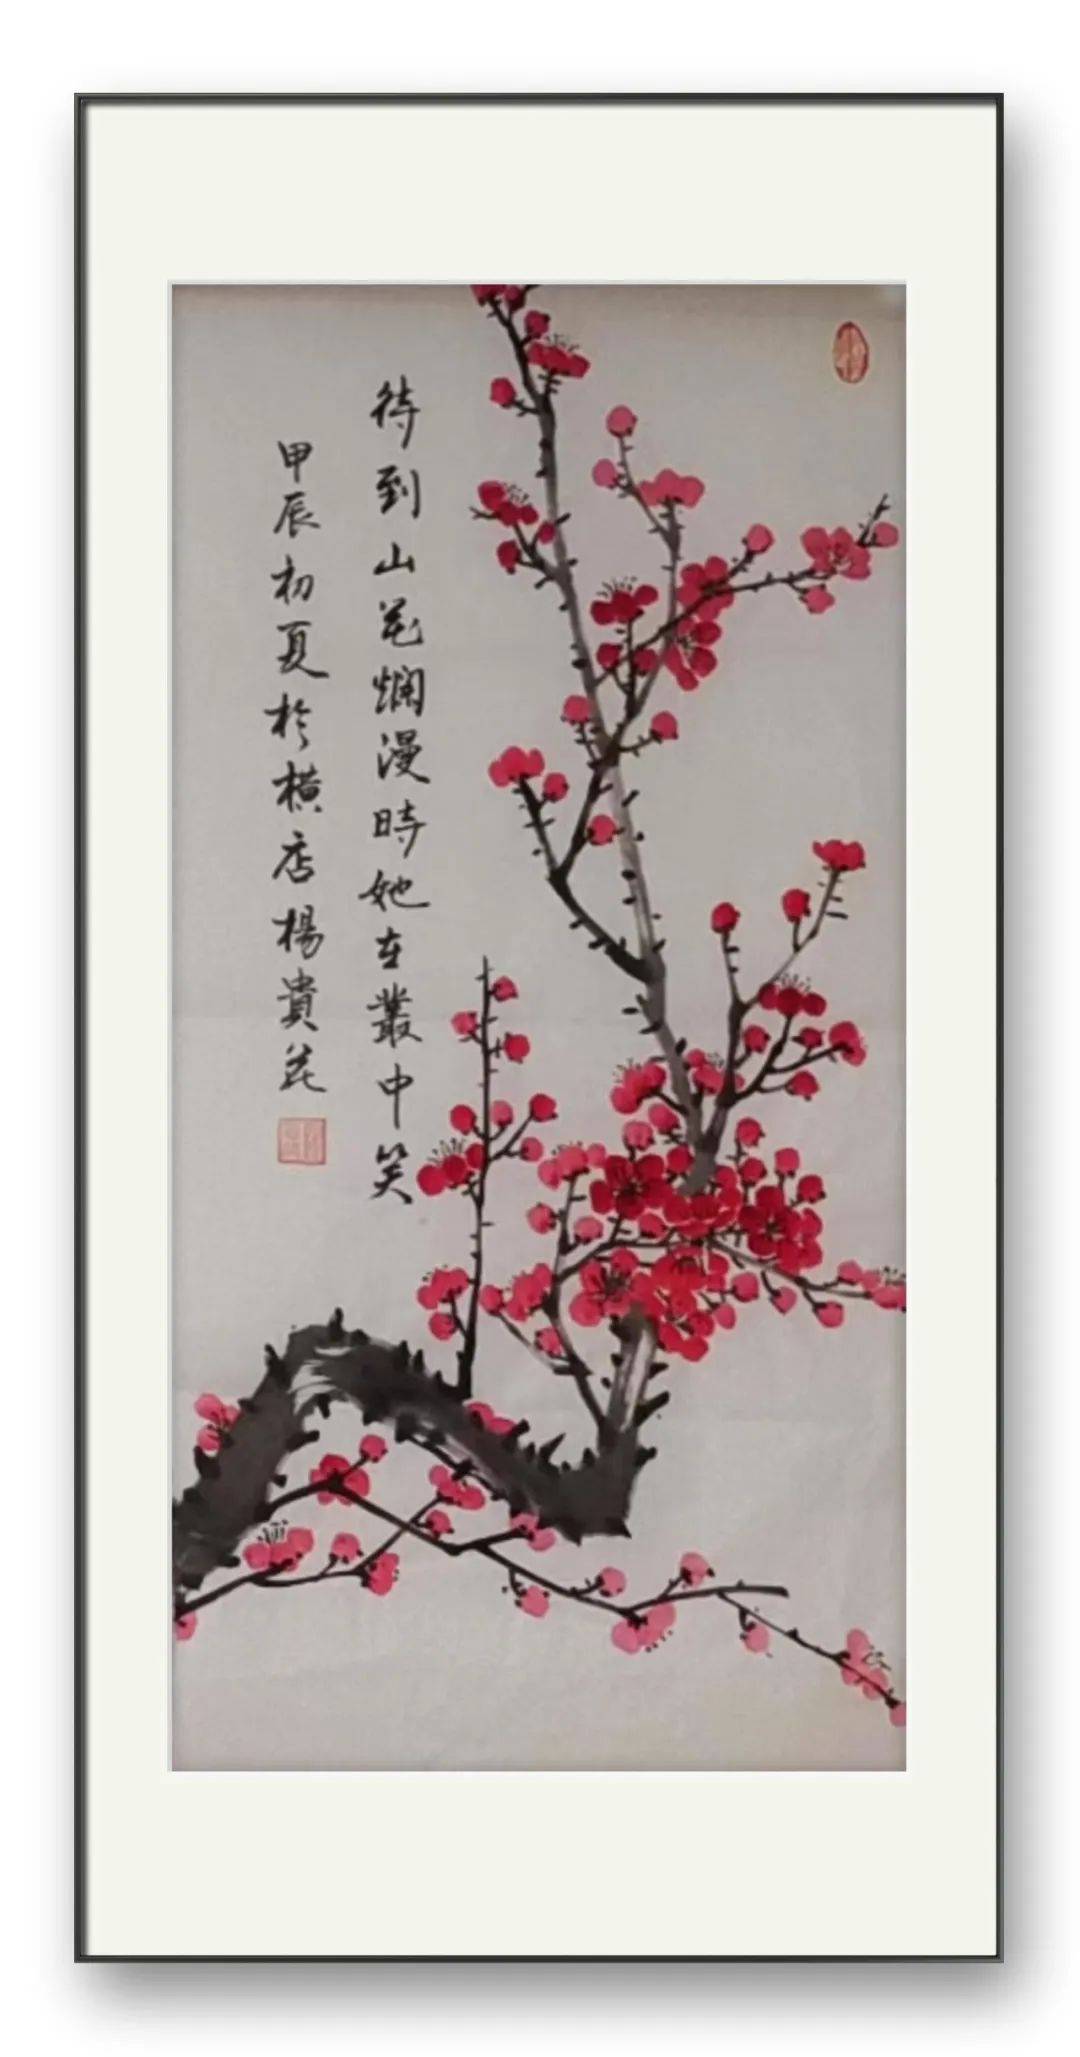 待到山花爛漫時她在叢中笑
甲辰初夏於橫店楊貴花